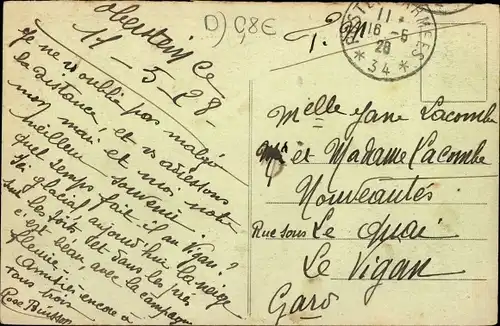 D) C8E
Oberstein Ce
11-5-28-
Je ne vs oublie pas malgré
la distance, et vs adressons
mon mari et moi notre
meilleur souvenir.
quel temps fait il au Vigan?
Ici glacial aujourd'hui la neige
sur les toits et dans les prés
c'est beau, avec la campagne
fleurie,
Amitiés encore à
tous trois
Rose
POSTE AUX ARMEES
11 *
16-5
28
* 34 *
F. M.
Melle Jane Lacombe
et Madame Lacombe
Nouveautés
Rue sous Le Quai
Le Vigan
Gard